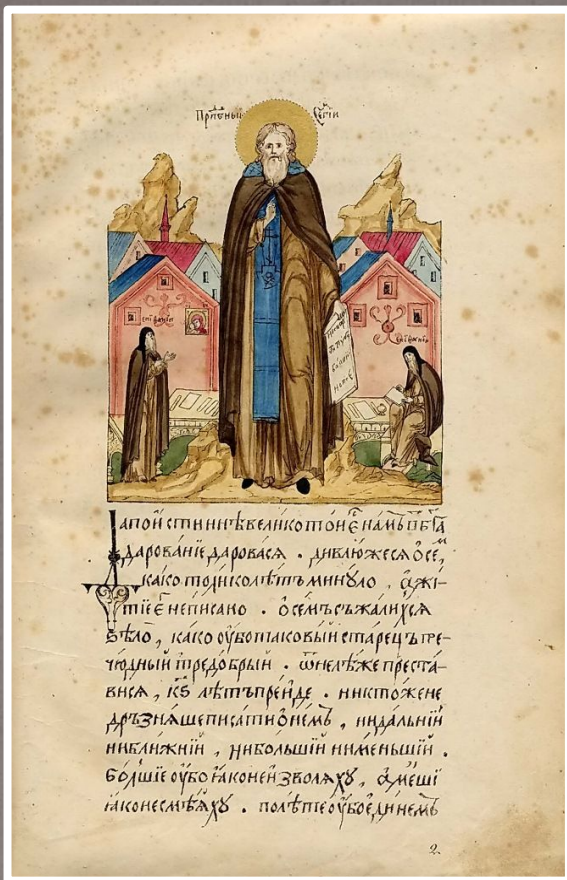 Прп҃дбныи Сергїи
епифанїи
епифанїи
апои стиннѣ велико то и҆ Е҆ намъ ѿ б҃га
дарованїе даровася . дивлюжеся ѻ҆ се҆м,
како толико лѣтъ минуло , а҆ жи-
тїе Е҆ не писано . ѻ҆ семъ съжалихся
ѕѣло , како оу҆бо таковый старецъ пре-
чюдный предобрый . ѿнелѣже преста-
вися , к҃ѕ лѣтъ прейде . никтоже не
дръзняше писати ѻ҆ немъ , ни далнїй
ни ближнїй , ни большїй ни меньшїй .
болшїе оу҆бо ꙗко не изволяху , а҆ меншї
ꙗко не смѣяху . по лѣтѣ оу҆бо единемъ
2.